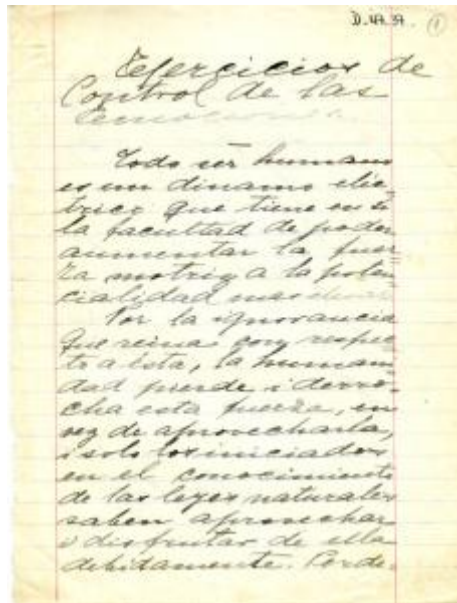 D.47.37. (1)
Ejercicios de
Control de las
emociones.
Todo ser humano
es un dinamo eléc-
trico que tiene en si
la facultad de poder
aumentar la fuer-
za motriz a la poten-
cialidad mas
Por la ignorancia
que reina con respec-
to a ésta, la humani-
dad pierde i derro-
cha esta fuerza, en
vez de aprovecharla,
i solo los iniciados
en el conocimiento
de las leyes naturales
saben aprovechar
i disfrutar de ella
debidamente. Perde-